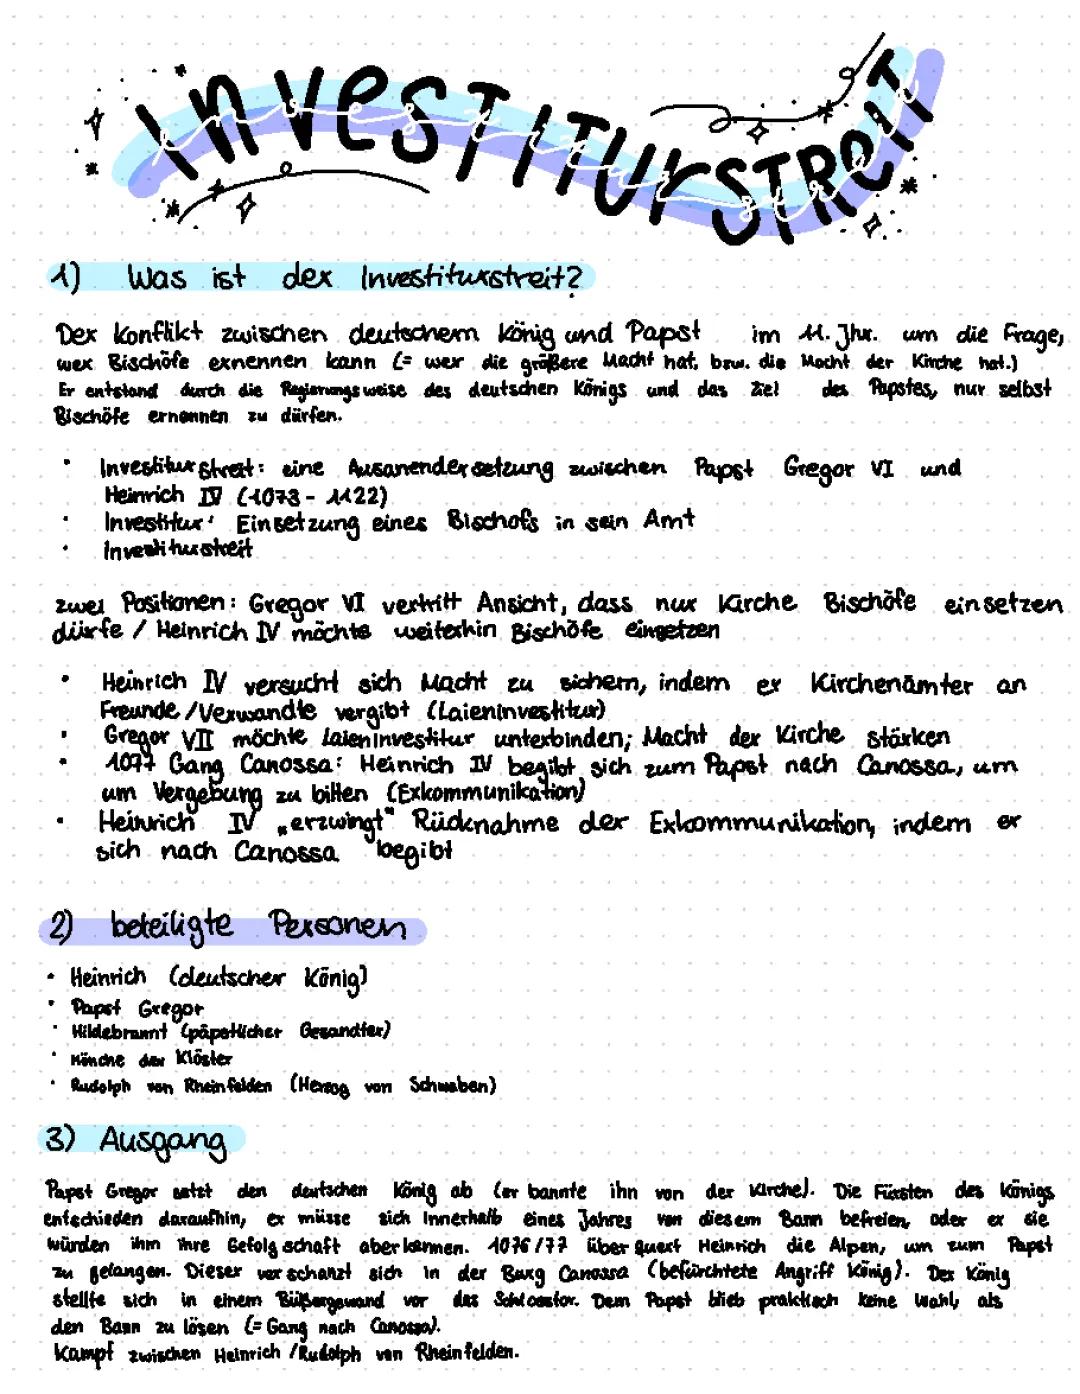 INVESTITURSTREIT
investiturstreit
1) Was ist der Investiturstreit?
Der Konflikt zwischen deutschem König und Papst im 11. Jhr. um die Frage,
wer Bischöfe ernennen kann (= wer die größere Macht hat, bzw. die Macht der Kirche hat.)
Er entstand durch die Regierungsweise des deutschen Königs und das Ziel des Papstes, nur selbst
Bischöfe ernennen zu dürfen.
• Investiturstreit: eine Ausanendersetzung zwischen Papst Gregor VI und
Heinrich IV (1073 - 1122)
• Investitur: Einsetzung eines Bischofs in sein Amt
• Investiturstreit
zwei Positionen: Gregor VI vertritt Ansicht, dass nur Kirche Bischöfe einsetzen
dürfe / Heinrich IV möchte weiterhin Bischöfe einsetzen
• Heinrich IV versucht sich Macht zu sichern, indem er Kirchenämter an
Freunde/Verwandte vergibt (Laieninvestitur)
• Gregor VII möchte Laieninvestitur unterbinden; Macht der Kirche stärken
• 1077 Gang Canossa: Heinrich IV begibt sich zum Papst nach Canossa, um
um Vergebung zu bitten (Exkommunikation)
• Heinrich IV „erzwingt" Rücknahme der Exkommunikation, indem er
sich nach Canossa begibt
2) beteiligte Personen
• Heinrich (deutscher König)
• Papst Gregor
• Hildebrannt (päpstlicher Gesandter)
• Mönche der Klöster
• Rudolph von Rheinfelden (Herzog von Schwaben)
3) Ausgang
Papst Gregor setzt den deutschen König ab (er bannte ihn von der Kirche). Die Fürsten des Königs
entschieden daraufhin, er müsse sich innerhalb eines Jahres von diesem Bann befreien, oder er sie
würden ihm ihre Gefolgschaft aberkennen. 1076/77 überquert Heinrich die Alpen, um zum Papst
zu gelangen. Dieser verschanzt sich in der Burg Canossa (befürchtete Angriff König). Der König
stellte sich in einem Büßergewand vor das Schlosstor. Dem Papst blieb praktisch keine Wahl, als
den Bann zu lösen (= Gang nach Canossa).
Kampf zwischen Heinrich / Rudolph von Rheinfelden.